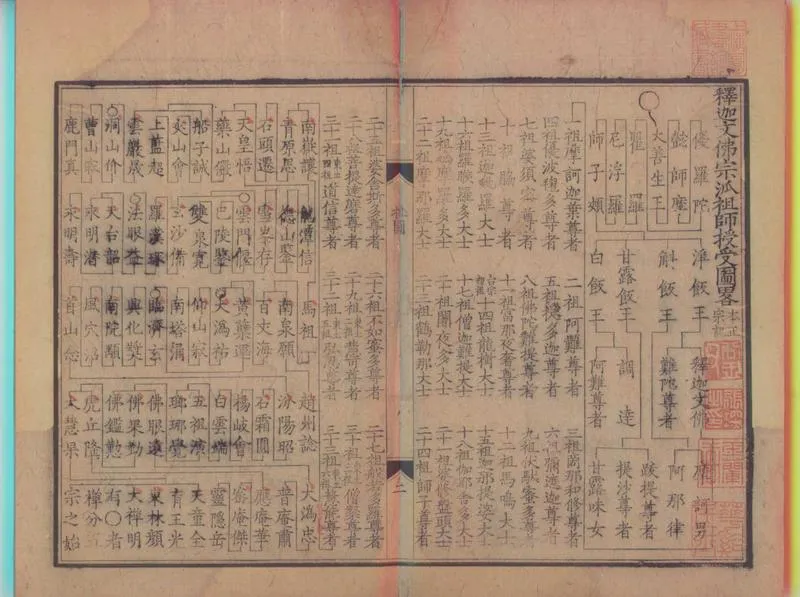 釋迦文佛宗派祖師授受圖畧
本正宗記
懿師摩
大善生王
尼浮羅
師子頰
淨飯王
斛飯王
甘露飯王
白飯王
釋迦文佛
難陁尊者
調達
阿難尊者
摩訶男
阿那律
跋提尊者
提沙尊者
甘露味女
一祖摩訶迦葉尊者
二祖阿難尊者
三祖商那和修尊者
四祖優波毱多尊者
五祖提多迦尊者
六祖彌遮迦尊者
七祖婆須密尊者
八祖佛陀難提尊者
九祖伏馱蜜多尊者
十祖脇尊者
十一祖富那夜奢尊者
十二祖馬鳴大士
十三祖迦毗羅大士
十四祖龍樹大士
十五祖迦那提婆大士
十六祖羅睺羅大士
十七祖僧迦難提大士
十八祖伽耶舍多大士
十九祖鳩摩羅多大士
二十祖闍夜多大士
二十一祖婆修盤頭大士
二十二祖摩拏羅大士
二十三祖鶴勒那大士
二十四祖師子尊者
二
二十五祖婆舍斯多尊者
二十六祖不如蜜多尊者
二十七祖般若多羅尊者
二十八祖菩提達磨尊者
二十九祖
尊者
三十祖
僧璨尊者
三十一祖
道信尊者
三十二祖
弘忍尊者
三十三祖
慧能尊者
南嶽讓
馬祖一
趙州諗
大溈忠
青原思
德山鑒
南泉願
汾陽昭
普庵肅
石頭遷
雪峯存
百丈海
石霜圓
應庵華
天皇悟
雲門偃
黃蘗運
楊岐會
密庵傑
藥山儼
巴陵鑒
大溈祐
白雲端
靈隱岳
船子誠
雙泉寛
仰山寂
五祖演
天童全
夾山會
玄沙備
南塔涌
瑯琊覺
育王光
上藍超
羅漢琛
臨濟玄
佛眼遠
東林顏
雲巖晟
法眼益
興化奬
佛果勤
大禪明
洞山价
天台韶
南院顒
佛鑑懃
有〇者
曹山寂
永明潛
風穴沼
虎丘隆
禪分五
鹿門真
永明壽
首山念
大慧杲
宗之始